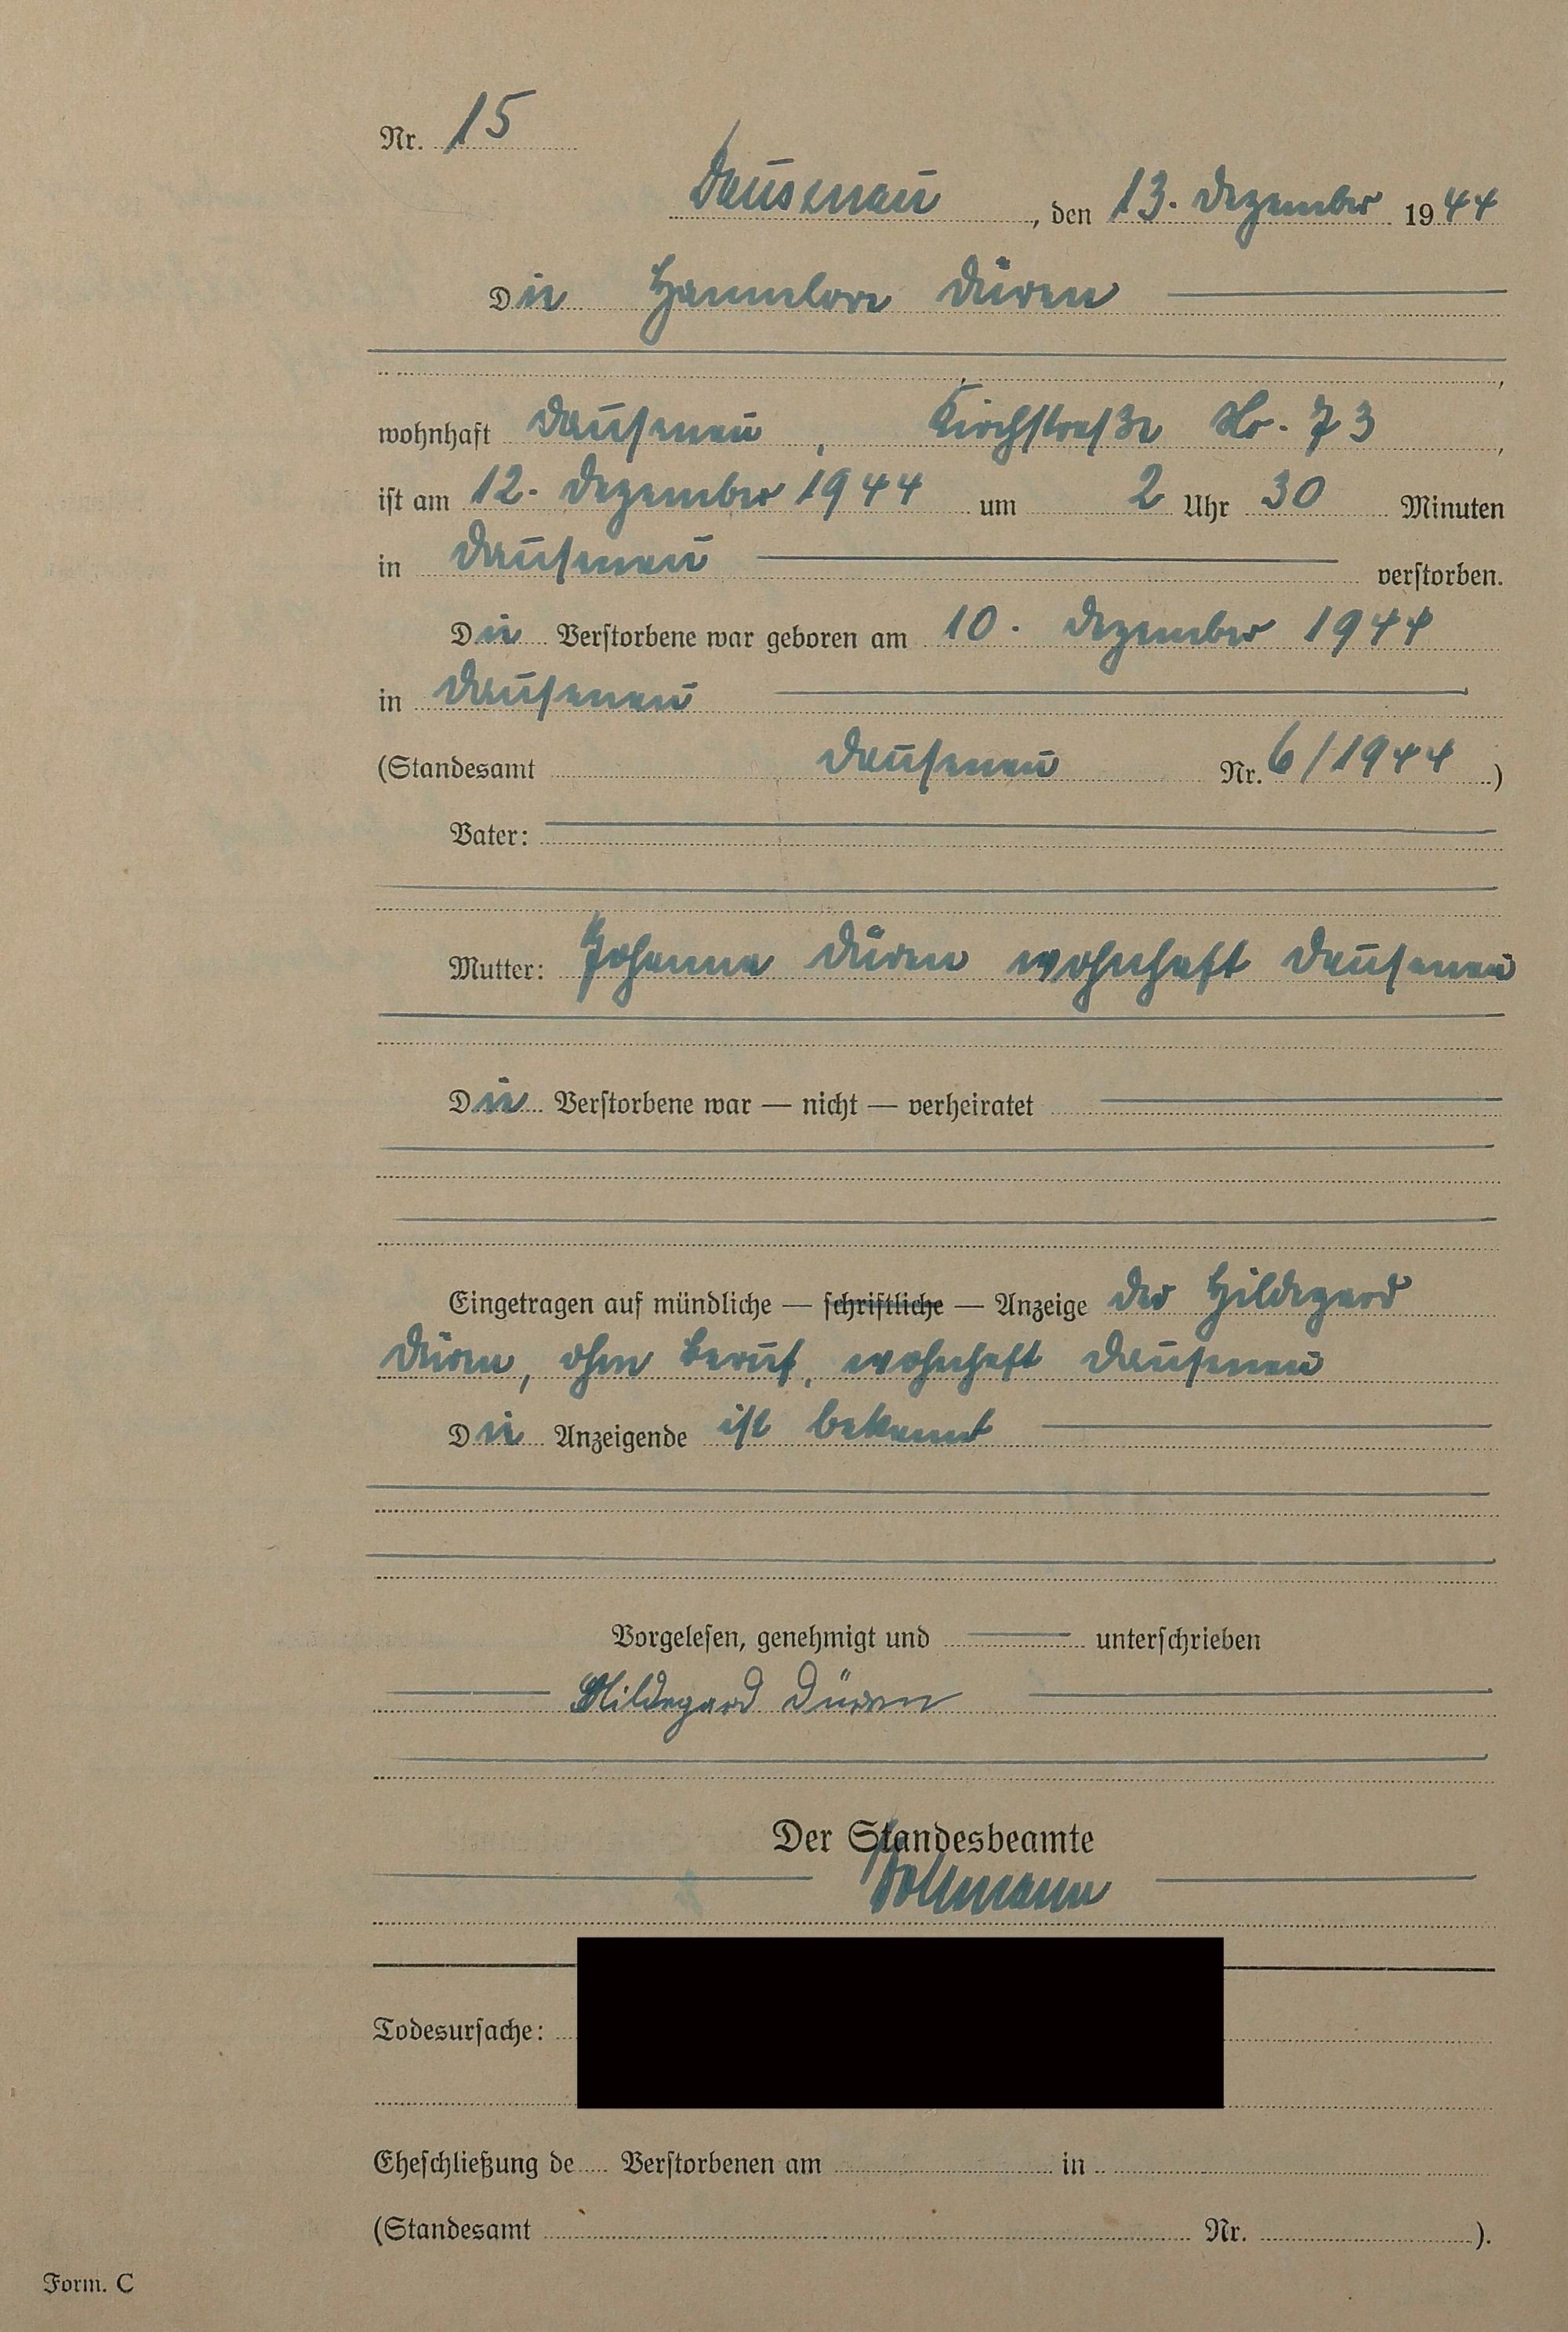 Nr. 15
Dausenau, den 13. Dezember 1944
Die Hannelore Düren
wohnhaft Dausenau, Kirchstraße Nr. 73,
ist am 12. Dezember 1944 um 2 Uhr 30 Minuten
in Dausenau verstorben.
Die Verstorbene war geboren am 10. Dezember 1944
in Dausenau
(Standesamt Dausenau Nr. 6/1944)
Vater:
Mutter: Johanna Düren wohnhaft Dausenau
Die Verstorbene war — nicht — verheiratet
Eingetragen auf mündliche — schriftliche — Anzeige der Hildegard
Düren, ohne Beruf, wohnhaft Dausenau
Die Anzeigende ist bekannt
Vorgelesen, genehmigt und unterschrieben
Hildegard Düren
Der Standesbeamte
Todesursache:
Eheschließung de Verstorbenen am in
(Standesamt Nr. ).
Form. C